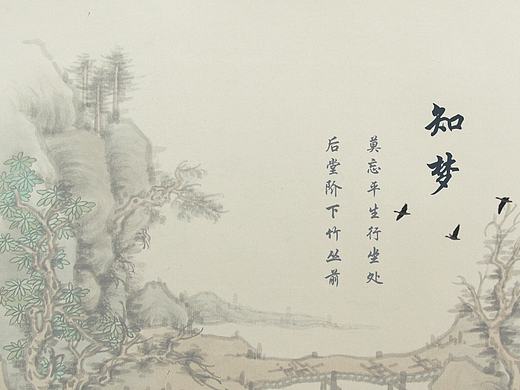 知梦
莫忘平生行坐处
后堂阶下竹丛前